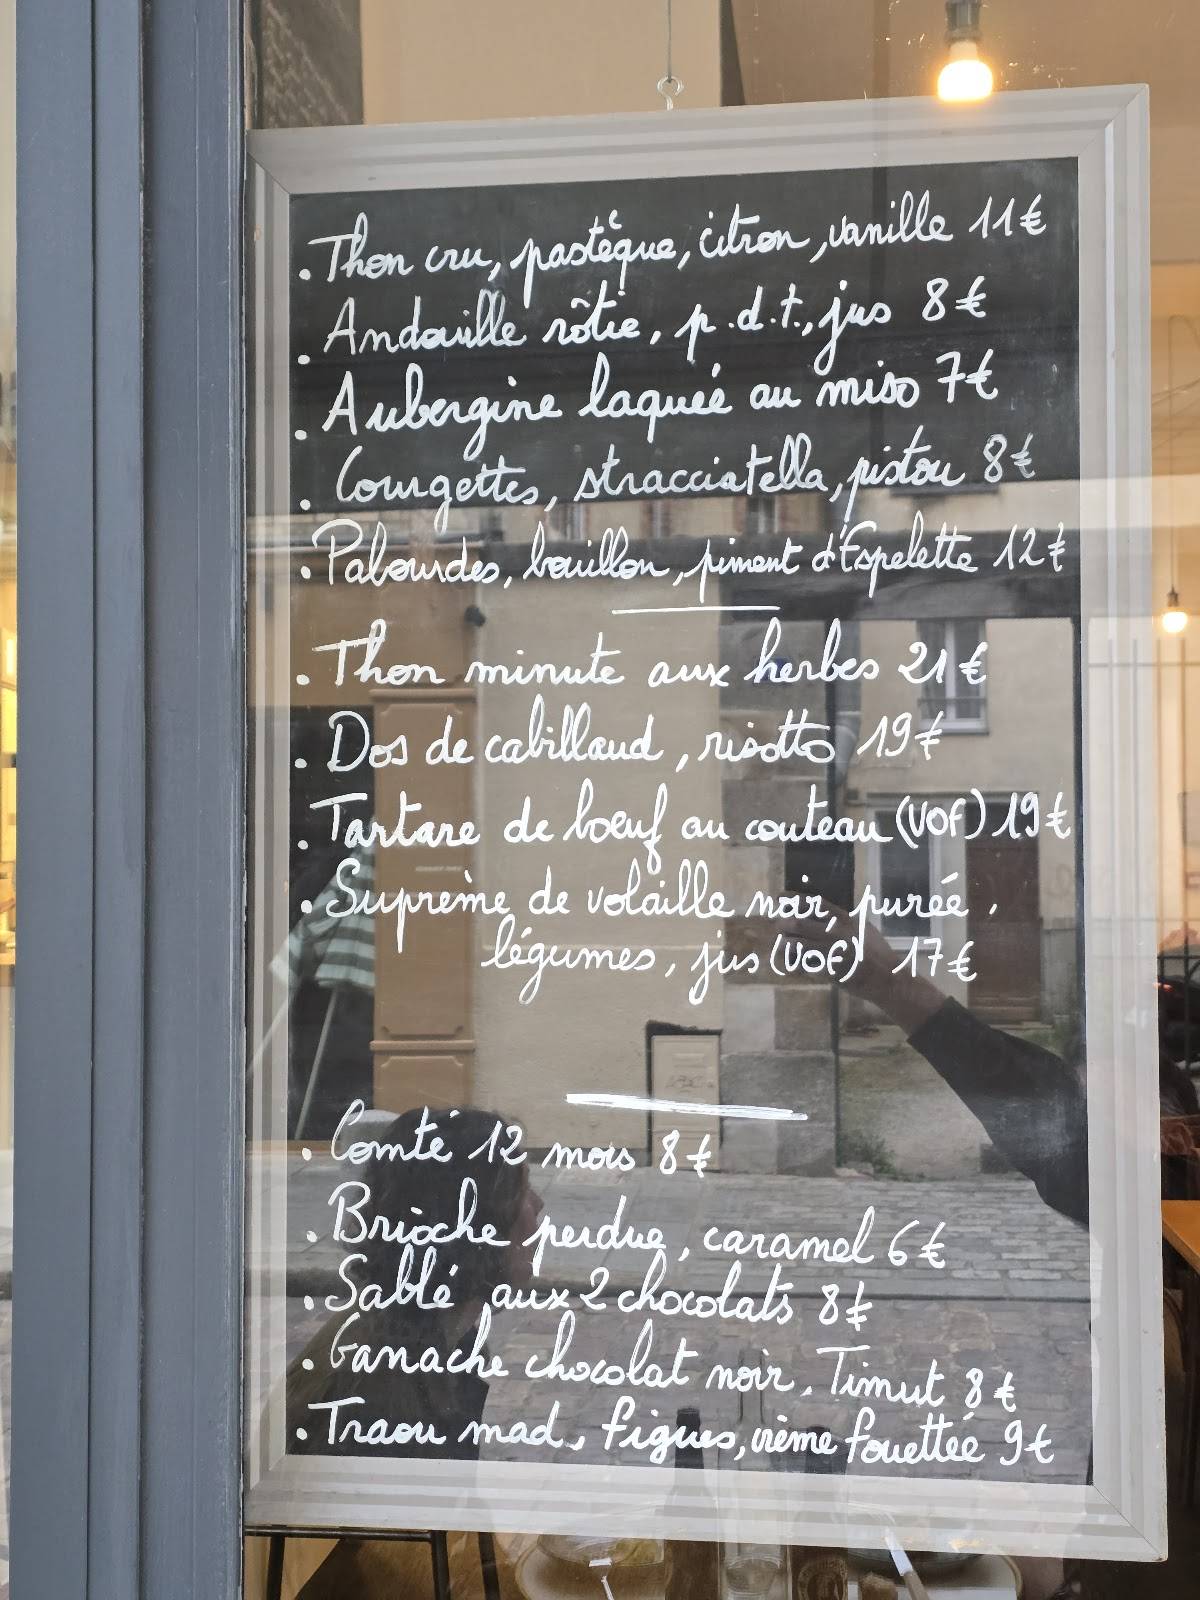 . Thon cru, pastèque, citron, vanille 11€
. Andouille rôtie, p.d.t., jus 8€
. Aubergine laquée au miso 7€
. Courgettes, stracciatella, pistou 8€
. Palourdes, bouillon, piment d'Espelette 12€
. Thon minute aux herbes 21€
. Dos de cabillaud, risotto 19€
. Tartare de boeuf au couteau (VOF) 19€
. Suprème de volaille noir, purée,
légumes, jus (VOF) 17€
. Comté 12 mois 8€
. Brioche perdue, caramel 6€
. Sablé aux 2 chocolats 8€
. Ganache chocolat noir, Timut 8€
. Traou mad, figues, crème fouettée 9€